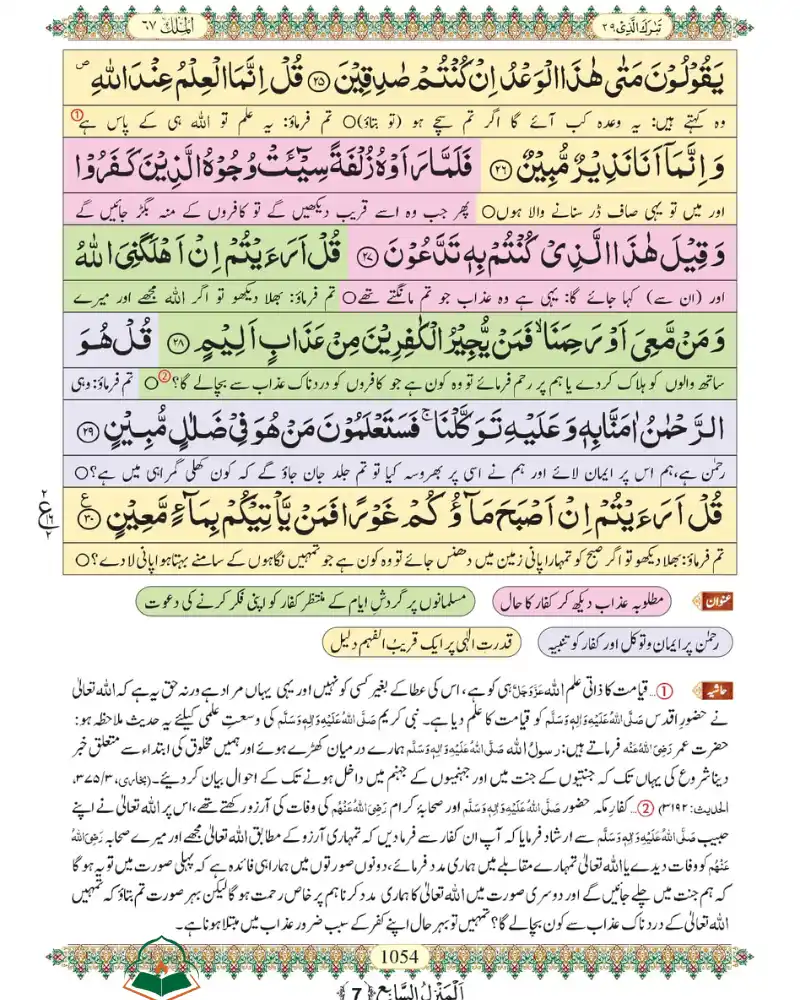 تبٰرک الّذی ٢٩
الملک ٦٧
یَقُوْلُوْنَ مَتٰى هٰذَا الْوَعْدُ اِنْ كُنْتُمْ صٰدِقِیْنَ ﴿۲۵﴾ قُلْ اِنَّمَا الْعِلْمُ عِنْدَ اللّٰهِ ص
وہ کہتے ہیں: یہ وعدہ کب آئے گا اگر تم سچے ہو (تو بتاؤ)○ تم فرماؤ: یہ علم تو اللہ ہی کے پاس ہے ①
وَ اِنَّمَاۤ اَنَا نَذِیْرٌ مُّبِیْنٌ ﴿۲۶﴾ فَلَمَّا رَاَوْهُ زُلْفَةً سِیْٓــٴَـتْ وُجُوْهُ الَّذِیْنَ كَفَرُوْا
اور میں تو یہی صاف ڈر سنانے والا ہوں○ پھر جب وہ اسے قریب دیکھیں گے تو کافروں کے منہ بگڑ جائیں گے
وَ قِیْلَ هٰذَا الَّذِیْ كُنْتُمْ بِهٖ تَدَّعُوْنَ ﴿۲۷﴾ قُلْ اَرَءَیْتُمْ اِنْ اَهْلَكَنِیَ اللّٰهُ
اور (ان سے) کہا جائے گا: یہی ہے وہ عذاب جو تم مانگتے تھے○ تم فرماؤ: بھلا دیکھو تو اگر اللہ مجھے اور میرے
وَ مَنْ مَّعِیَ اَوْ رَحِمَنَاۙ فَمَنْ یُّجِیْرُ الْكٰفِرِیْنَ مِنْ عَذَابٍ اَلِیْمٍ ﴿۲۸﴾ قُلْ هُوَ
ساتھ والوں کو ہلاک کردے یا ہم پر رحم فرمائے تو وہ کون ہے جو کافروں کو دردناک عذاب سے بچالے گا؟②○ تم فرماؤ: وہی
الرَّحْمٰنُ اٰمَنَّا بِهٖ وَ عَلَیْهِ تَوَكَّلْنَاۚ فَسَتَعْلَمُوْنَ مَنْ هُوَ فِیْ ضَلٰلٍ مُّبِیْنٍ ﴿۲۹﴾
رحمٰن ہے، ہم اس پر ایمان لائے اور ہم نے اسی پر بھروسہ کیا تو تم جلد جان جاؤ گے کہ کون کھلی گمراہی میں ہے؟○
قُلْ اَرَءَیْتُمْ اِنْ اَصْبَحَ مَآؤُكُمْ غَوْرًا فَمَنْ یَّاْتِیْكُمْ بِمَآءٍ مَّعِیْنٍ ﴿۳۰﴾ ع
تم فرماؤ: بھلا دیکھو تو اگر صبح کو تمہارا پانی زمین میں دھنس جائے تو وہ کون ہے جو تمہیں نگاہوں کے سامنے بہتا ہوا پانی لادے؟○
عنوان مطلوبہ عذاب دیکھ کر کفار کا حال مسلمانوں پر گردشِ ایام کے منتظر کفار کو اپنی فکر کرنے کی دعوت
رحمٰن پر ایمان و توکل اور کفار کو تنبیہ قدرتِ الٰہی پر ایک قریبُ الفہم دلیل
حاشیہ ①... قیامت کا ذاتی علم اللہ عَزَّوَجَلَّ ہی کو ہے، اس کی عطا کے بغیر کسی کو نہیں اور یہی یہاں مراد ہے ورنہ حق یہ ہے کہ اللہ تعالیٰ
نے حضورِ اقدس صَلَّی اللہُ عَلَیْہِ وَاٰلِہٖ وَسَلَّم کو قیامت کا علم دیا ہے۔ نبی کریم صَلَّی اللہُ عَلَیْہِ وَاٰلِہٖ وَسَلَّم کی وسعتِ علمی کیلئے یہ حدیث ملاحظہ ہو:
حضرت عمر رَضِیَ اللہُ عَنْہ فرماتے ہیں: رسولُ اللہ صَلَّی اللہُ عَلَیْہِ وَاٰلِہٖ وَسَلَّم ہمارے درمیان کھڑے ہوئے اور ہمیں مخلوق کی ابتداء سے متعلق خبر
دینا شروع کی یہاں تک کہ جنتیوں کے جنت میں اور جہنمیوں کے جہنم میں داخل ہونے تک کے احوال بیان کر دیئے۔ (بخاری، ۳/۳۷۵،
الحدیث: ۳۱۹۲) ②... کفارِ مکہ حضور صَلَّی اللہُ عَلَیْہِ وَاٰلِہٖ وَسَلَّم اور صحابۂ کرام رَضِیَ اللہُ عَنْہُم کی وفات کی آرزو رکھتے تھے، اس پر اللہ تعالیٰ نے اپنے
حبیب صَلَّی اللہُ عَلَیْہِ وَاٰلِہٖ وَسَلَّم سے ارشاد فرمایا کہ آپ ان کفار سے فرما دیں کہ تمہاری آرزو کے مطابق اللہ تعالیٰ مجھے اور میرے صحابہ رَضِیَ اللہُ
عَنْہُم کو وفات دیدے یا اللہ تعالیٰ تمہارے مقابلے میں ہماری مدد فرمائے، دونوں صورتوں میں ہمارا ہی فائدہ ہے کہ پہلی صورت میں تو یہ ہوگا
کہ ہم جنت میں چلے جائیں گے اور دوسری صورت میں اللہ تعالیٰ کا ہماری مدد کرنا ہم پر خاص رحمت ہو گا لیکن بہر صورت تم بتاؤ کہ تمہیں
اللہ تعالیٰ کے دردناک عذاب سے کون بچالے گا؟ تمہیں تو بہر حال اپنے کفر کے سبب ضرور عذاب میں مبتلا ہونا ہے۔
1054
اَلْمَنْزِلُ السَّابِع ﴿7﴾